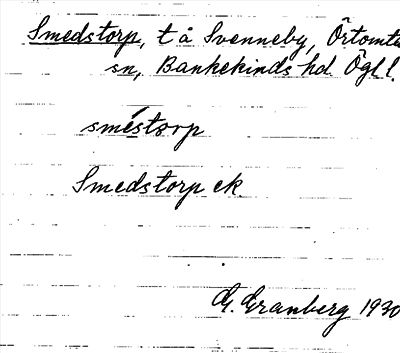 Smedstorp, t å Svenneby, Örtomta
sn, Bankekinds hd. Ögl.
smestorp
Smedstorp ek
G. Granberg 1930